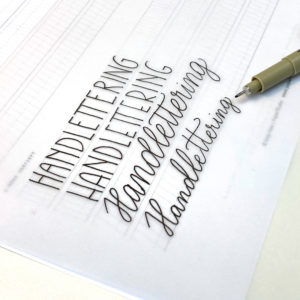 HANDLETTERING
HANDLETTERING
Handlettering
Handlettering